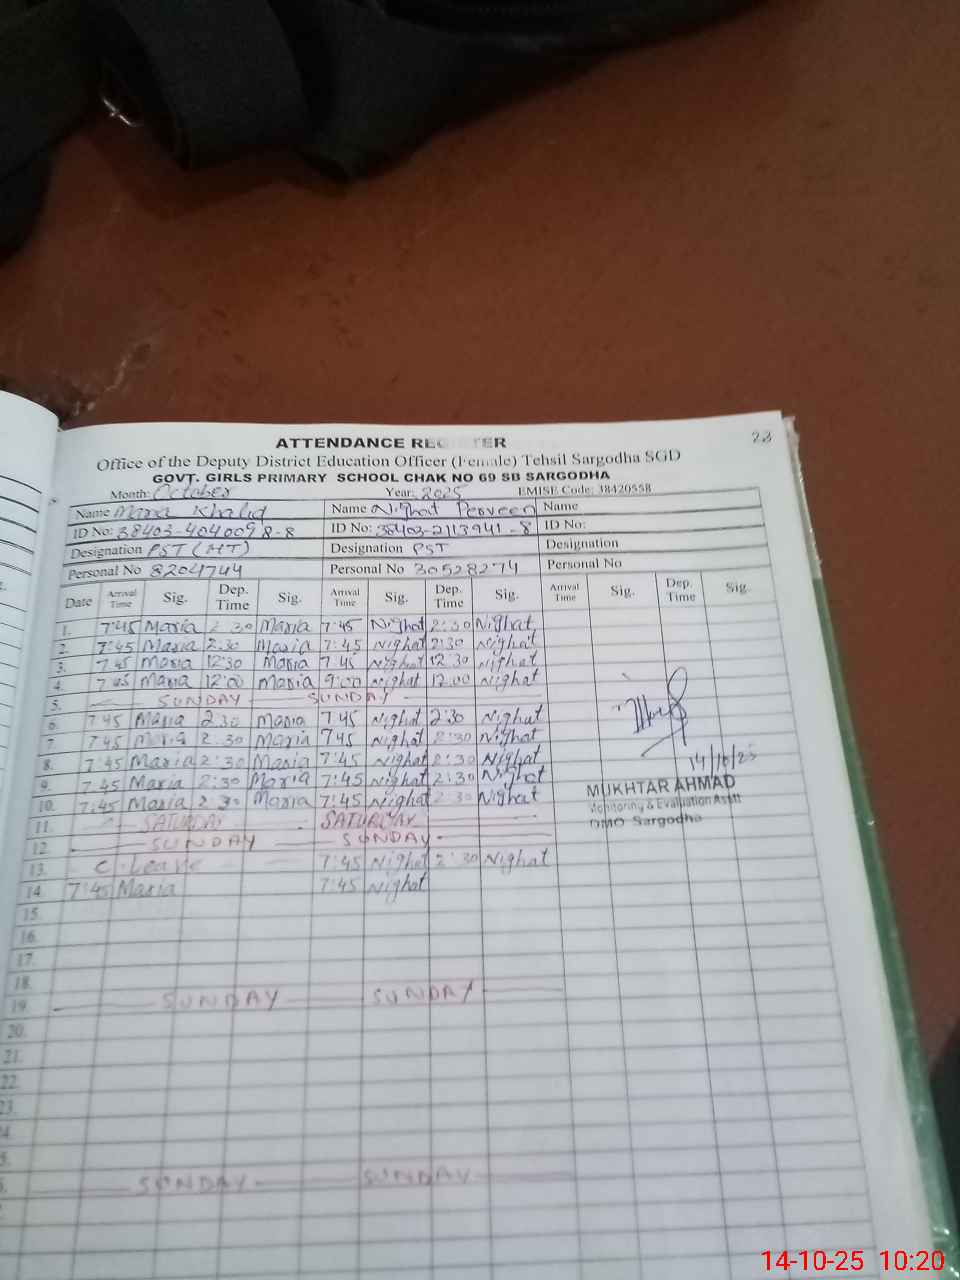 23
ATTENDANCE REGISTER
Office of the Deputy District Education Officer (Female) Tehsil Sargodha SGD
GOVT. GIRLS PRIMARY SCHOOL CHAK NO 69 SB SARGODHA
Month: October Year: 2025 EMISE Code: 38420558
Name Maria Khalid Name Nighat Perveen Name
ID No: 38403-404009 8-8 ID No: 38403-2113941-8 ID No:
Designation PST (HT) Designation PST Designation
Personal No 8204744 Personal No 30528274 Personal No
Date Arrival Time Sig. Dep. Time Sig. Arrival Time Sig. Dep. Time Sig. Arrival Time Sig. Dep. Time Sig.
1. 7:45 Maria 2:30 Maria 7:45 Nighat 2:30 Nighat
2. 7:45 Maria 2:30 Maria 7:45 Nighat 2:30 Nighat
3. 7 45 Maria 12:30 Maria 7 45 Nighat 12:30 Nighat
4. 7 45 Maria 12:00 Maria 9:00 Nighat 12:00 Nighat
5. SUNDAY SUNDAY
6. 7 45 Maria 2:30 Maria 7 45 Nighat 2:30 Nighat
7. 7 45 Maria 2:30 Maria 7 45 Nighat 2:30 Nighat
8. 7:45 Maria 2:30 Maria 7:45 Nighat 2:30 Nighat
9. 7 45 Maria 2:30 Maria 7:45 Nighat 2:30 Nighat
10. 7:45 Maria 2:30 Maria 7:45 Nighat 2:30 Nighat
11. SATURDAY SATURDAY
12. SUNDAY SUNDAY
13. C-Leave 7:45 Nighat 2:30 Nighat
14. 7:45 Maria 7:45 Nighat
15.
16.
17.
18.
19. SUNDAY SUNDAY
20.
21.
22.
23.
SUNDAY SUNDAY
14/10/25
MUKHTAR AHMAD
Monitoring & Evaluation Asstt
DMO Sargodha
14-10-25 10:20